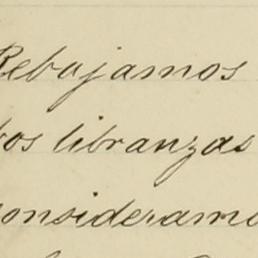 Rebajamos
bos libranzas
consideramo